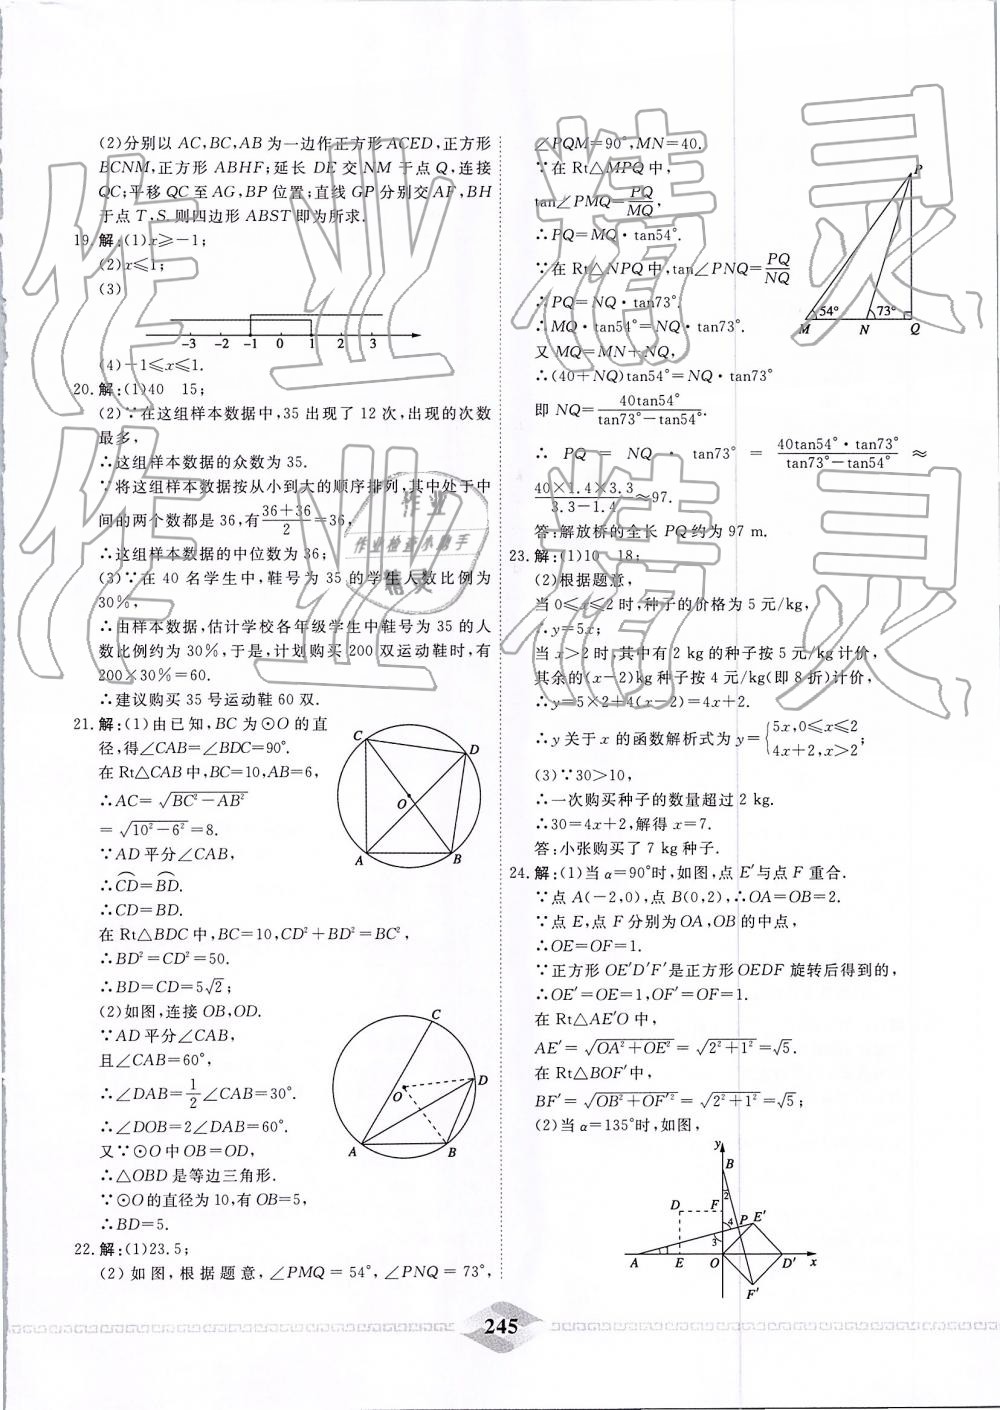 (2)分别以 AC,BC,AB 为一边作正方形 ACED,正方形
BCNM,正方形 ABHF;延长 DE 交 NM 于点 Q,连接
QC;平移 QC 至 AG,BP 位置;直线 GP 分别交 AF,BH
于点 T,S.则四边形 ABST 即为所求.
19.解:(1)x≥-1;
(2)x≤1;
(3)
-3 -2 -1 0 1 2 3
(4)-1≤x≤1.
20.解:(1)40 15;
(2)∵在这组样本数据中,35 出现了 12 次,出现的次数
最多,
∴这组样本数据的众数为 35.
∵将这组样本数据按从小到大的顺序排列,其中处于中
间的两个数都是 36,有(36+36)/2=36,
∴这组样本数据的中位数为 36;
(3)∵在 40 名学生中,鞋号为 35 的学生人数比例为
30%,
∴由样本数据,估计学校各年级学生中鞋号为 35 的人
数比例约为 30%,于是,计划购买 200 双运动鞋时,有
200×30%=60.
∴建议购买 35 号运动鞋 60 双.
21.解:(1)由已知,BC 为⊙O 的直
径,得∠CAB=∠BDC=90°.
在 Rt△CAB 中,BC=10,AB=6,
∴AC=√(BC²-AB²)
=√(10²-6²)=8.
∵AD 平分∠CAB,
∴⌒CD=⌒BD.
∴CD=BD.
在 Rt△BDC 中,BC=10,CD²+BD²=BC²,
∴BD²=CD²=50.
∴BD=CD=5√2;
C D O A B
(2)如图,连接 OB,OD.
∵AD 平分∠CAB,
且∠CAB=60°,
∴∠DAB=1/2∠CAB=30°.
∴∠DOB=2∠DAB=60°.
又∵⊙O 中 OB=OD,
∴△OBD 是等边三角形.
∵⊙O 的直径为 10,有 OB=5,
∴BD=5.
C D O A B
22.解:(1)23.5;
(2)如图,根据题意,∠PMQ=54°,∠PNQ=73°,
∠PQM=90°,MN=40.
∵在 Rt△MPQ 中,
tan∠PMQ=PQ/MQ,
∴PQ=MQ·tan54°.
∵在 Rt△NPQ 中,tan∠PNQ=PQ/NQ
∴PQ=NQ·tan73°.
∴MQ·tan54°=NQ·tan73°.
又 MQ=MN+NQ,
∴(40+NQ)tan54°=NQ·tan73°
即 NQ=40tan54°/(tan73°-tan54°).
∴ PQ = NQ · tan73° = 40tan54°·tan73°/(tan73°-tan54°) ≈
(40×1.4×3.3)/(3.3-1.4)≈97.
答:解放桥的全长 PQ 约为 97 m.
P 54° 73° M N Q
23.解:(1)10 18;
(2)根据题意,
当 0≤x≤2 时,种子的价格为 5 元/kg,
∴y=5x;
当 x>2 时,其中有 2 kg 的种子按 5 元/kg 计价,
其余的(x-2)kg 种子按 4 元/kg(即 8 折)计价,
∴y=5×2+4(x-2)=4x+2.
∴y 关于 x 的函数解析式为 y={5x,0≤x≤2
4x+2,x>2;
(3)∵30>10,
∴一次购买种子的数量超过 2 kg.
∴30=4x+2,解得 x=7.
答:小张购买了 7 kg 种子.
24.解:(1)当 α=90°时,如图,点 E′与点 F 重合.
∵点 A(-2,0),点 B(0,2),∴OA=OB=2.
∵点 E,点 F 分别为 OA,OB 的中点,
∴OE=OF=1.
∵正方形 OE′D′F′是正方形 OEDF 旋转后得到的,
∴OE′=OE=1,OF′=OF=1.
在 Rt△AE′O 中,
AE′=√(OA²+OE²)=√(2²+1²)=√5.
在 Rt△BOF′中,
BF′=√(OB²+OF′²)=√(2²+1²)=√5;
(2)当 α=135°时,如图,
y B 2 D F P E′ 4 3 A E O D′ x F′
245
作业精灵
作业精灵
作业
作业检查小助手
精灵